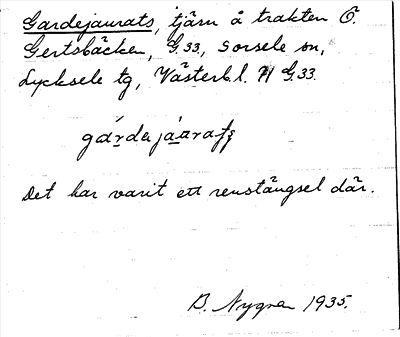 Gardejaurats, tjärn å trakten Ö.
Gertsbäcken, G.33, Sorsele sn,
Lycksele tg, Västerb.l. H G.33.
Det har varit ett renstängsel där.
B. Nygren 1935.